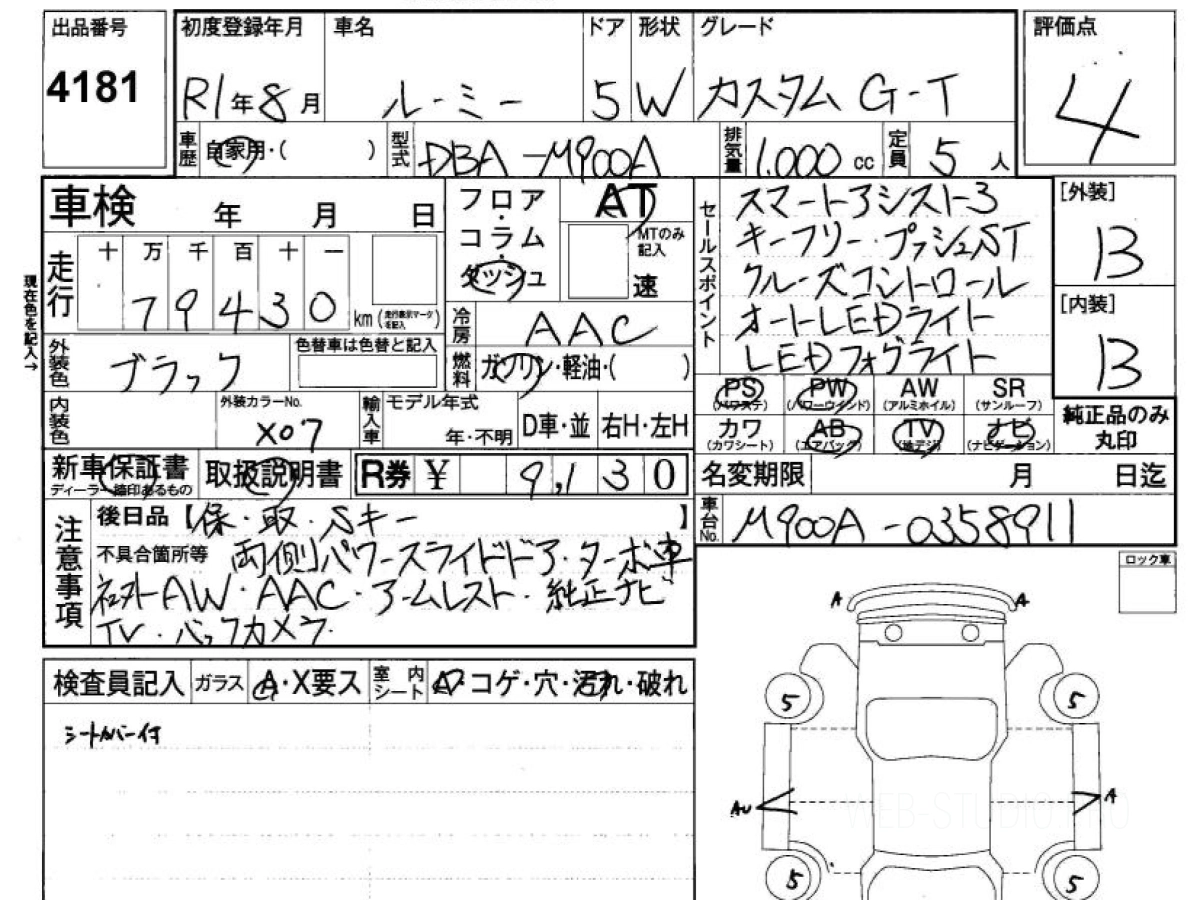 出品番号
4181
初度登録年月
R1年8月
車名
ルーミー
ドア
5
形状
W
グレード
カスタム G-T
評価点
4
車歴 自家用・( )
型式 DBA-M900A
排気量 1.000 cc
定員 5 人
車検 年 月 日
フロア・コラム・ダッシュ
AT
MTのみ記入
速
セールスポイント
スマートアシスト3
キーフリー・プッシュST
クルーズコントロール
オートLEDライト
LEDフォグライト
[外装]
B
[内装]
B
現在色を記入→
走行
十 万 千 百 十 一
7 9 4 3 0
km (走行表示マークを記入)
冷房 AAC
燃料 ガソリン・軽油・( )
外装色 ブラック
色替車は色替と記入
PS (パワステ)
PW (パワーウインド)
AW (アルミホイル)
SR (サンルーフ)
カワ (カワシート)
AB (エアバッグ)
TV (地デジ)
ナビ (ナビゲーション)
純正品のみ
丸印
内装色
外装カラーNo.
X07
輸入車
モデル年式
年・不明
D車・並
右H・左H
新車保証書
ディーラー捺印あるもの
取扱説明書
R券 ¥ 9,130
名変期限 月 日迄
車台No. M900A-0358911
注意事項
後日品【保・取・Sキー】
不具合箇所等 両側パワースライドドア・ターボ車
社外AW・AAC・アームレスト・純正ナビ
TV・バックカメラ
ロック車
A
A
検査員記入
ガラス A・X要ス
室内シート コゲ・穴・汚れ・破れ
シートカバー付
5
5
AU
A
5
5
WEB-STUDIO.PRO